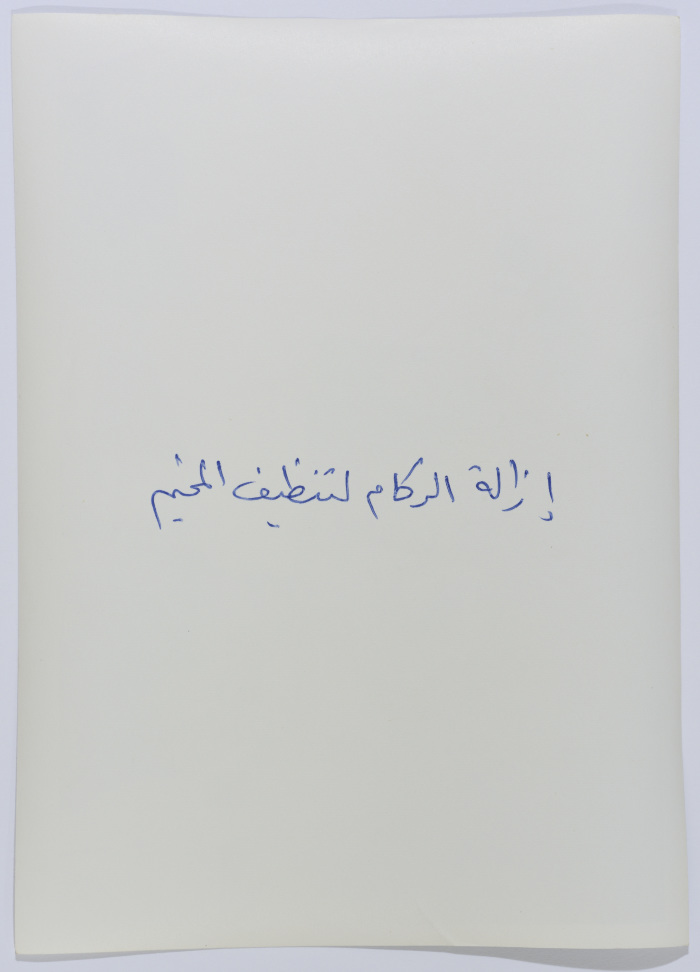 إزالة الركام لتنظيف المخيم